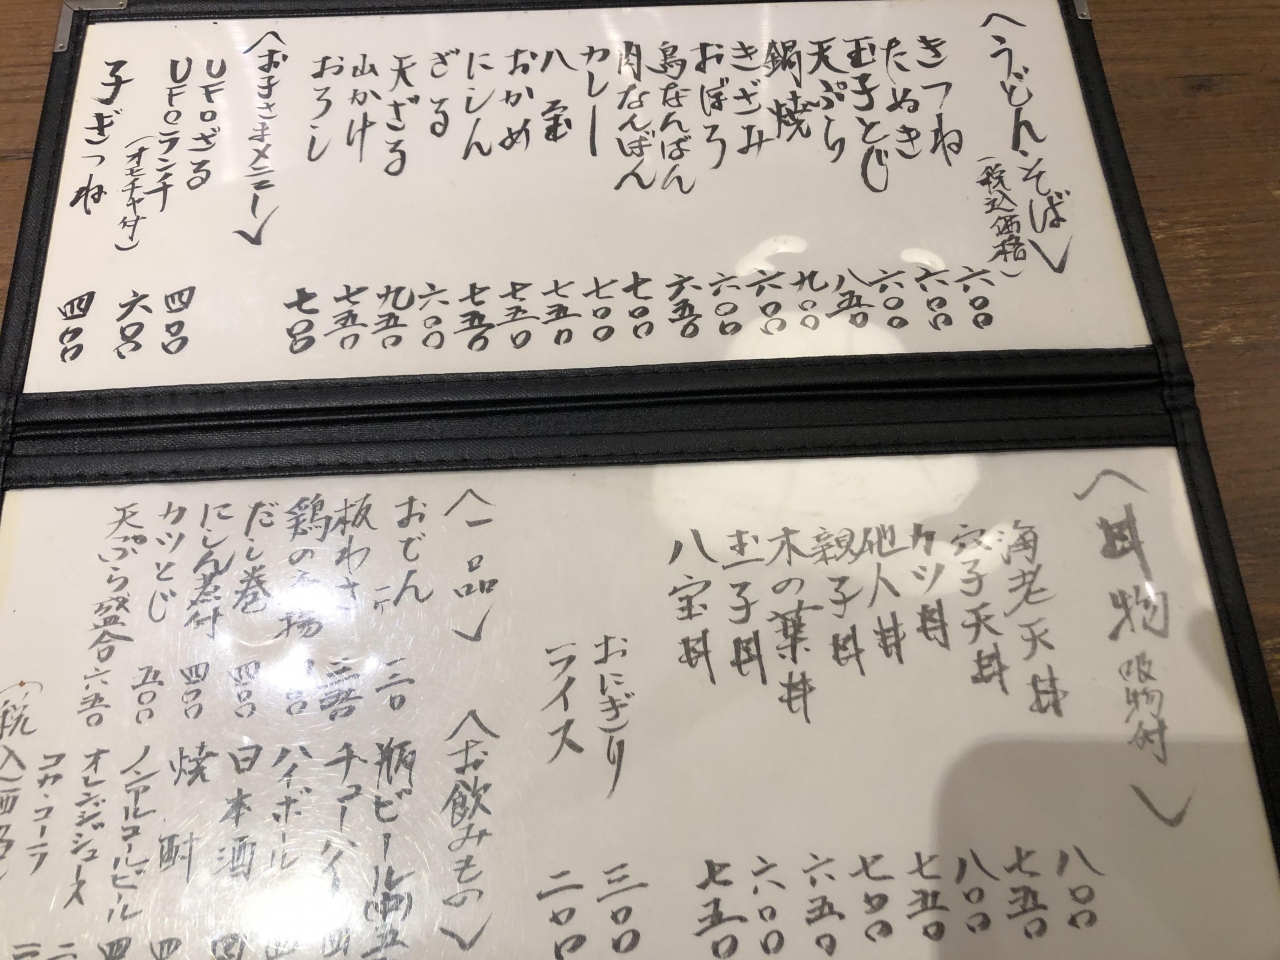 〈うどん・そば〉
(税込価格)
きつね 六〇〇
たぬき 六〇〇
玉子とじ 六〇〇
天ぷら 八五〇
鍋焼 九〇〇
きざみ 六〇〇
おぼろ 六〇〇
鳥なんばん 六五〇
肉なんばん 七〇〇
カレー 七〇〇
八宝 七五〇
おかめ 七五〇
にしん 七五〇
ざる 六〇〇
天ざる 九五〇
山かけ 七五〇
おろし 七〇〇
〈お子さまメニュー〉
UFOざる 四〇〇
UFOランチ 六〇〇
(オモチャ付)
子ぎつね 四〇〇
〈丼物 吸物付〉
海老天丼 八〇〇
穴子天丼 七五〇
カツ丼 八〇〇
他人丼 七五〇
親子丼 七〇〇
木の葉丼 六五〇
玉子丼 六〇〇
八宝丼 七五〇
おにぎり 三〇〇
ライス 二〇〇
〈一品〉
おでん
板わさ 三五〇
鶏の
だし巻 四〇〇
にしん煮付 四〇〇
カツとじ 五〇〇
天ぷら盛合 六五〇
〈お飲みもの〉
瓶ビール(中) 五
チューハイ 四
ハイボール 四
日本酒 四
焼酎 四
ノンアルコールビール 四
オレンジジュース 二
コカ・コーラ 二
(税込価格)